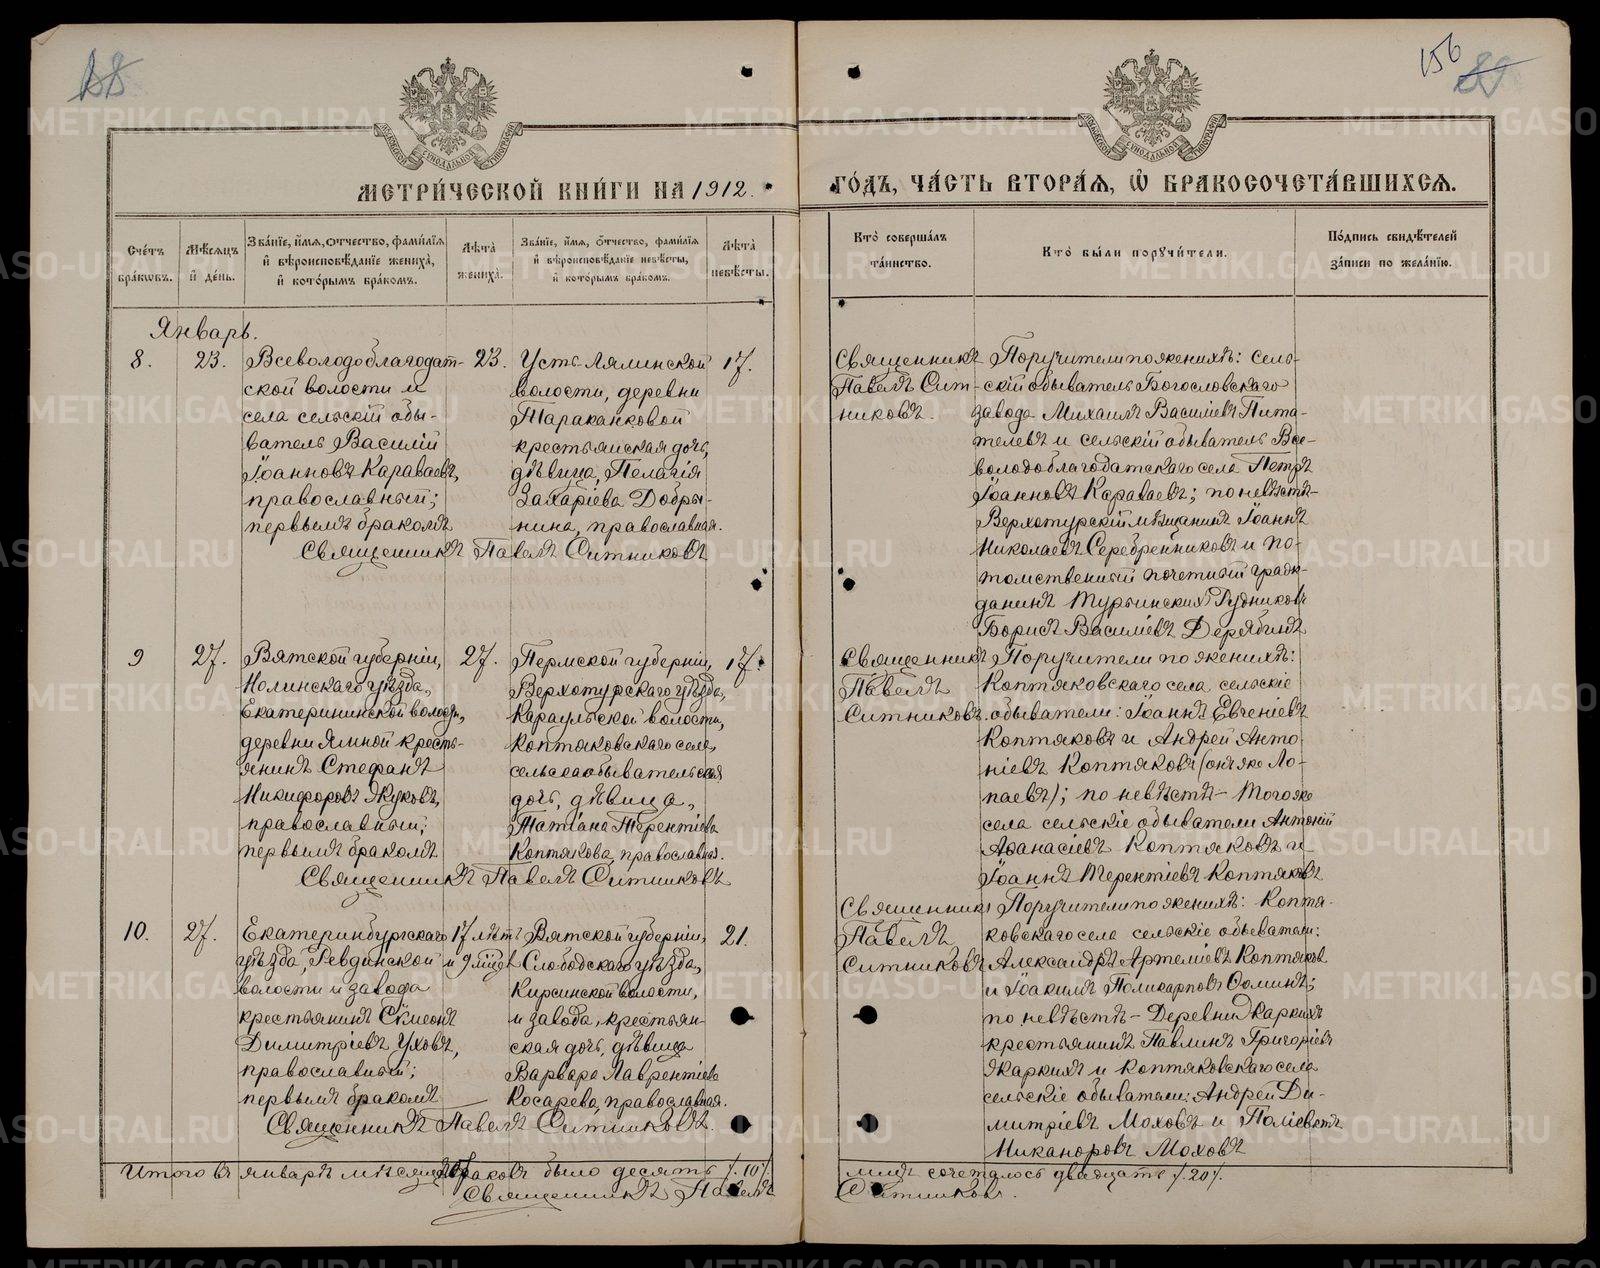 88
156
89
МЕТРИ́ЧЕСКОЙ КНИ́ГИ НА 1912.
ГО́ДЪ, ЧА́СТЬ ВТОРА́Я, Ѽ БРАКОСОЧЕТА́ВШИХСЯ.
Сче́тъ бра́кѡвъ.
Мѣ́сяцъ и҆ де́нь.
Зва́нїе, и҆́мя, ѻ҆́тчество, фами́лїя и҆ вѣроисповѣ́данїе жениха̀, и҆ кото́рымъ бра́комъ.
Лѣ́та̀ жениха̀.
Зва́нїе, и҆́мя, ѻ҆́тчество, фами́лїя и҆ вѣроисповѣ́данїе невѣ́сты, и҆ кото́рымъ бра́комъ.
Лѣ́та̀ невѣ́сты.
Кто̀ соверша́лъ та́инство.
Кто̀ бы́ли поручи́тели.
По́дпись свидѣ́телей за́писи по жела́нїю.
Январь.
8.
23.
Всеволодоблагодат-
ской волости и
села сельскій обы-
ватель Василій
Іоанновъ Караваевъ,
православный;
первымъ бракомъ
23.
Усть-Лялинской
волости, деревни
Тараканковой
крестьянская дочь,
дѣвица, Пелагія
Захаріева Добры-
нина, православная.
17.
Священникъ Павелъ Ситниковъ
Священникъ
Павелъ Сит-
никовъ.
Поручители по женихѣ: сель-
скій обыватель Богословскаго
завода Михаилъ Василіевъ Пита-
телевъ и сельскій обыватель Все-
володоблагодатскаго села Петръ
Іоанновъ Караваевъ; по невѣстѣ-
Верхотурскій мѣщанинъ Іоаннъ
Николаевъ Серебренниковъ и по-
томственный почетный граж-
данинъ Турьинскихъ Рудниковъ
Борисъ Василіевъ Дерябинъ
9
27.
Вятской губерніи,
Нолинскаго уѣзда,
Екатерининской волости,
деревни Ямной кресть-
янинъ Стефанъ
Никифоровъ Жуковъ,
православный;
первымъ бракомъ
27.
Пермской губерніи,
Верхотурскаго уѣзда,
Караульской волости,
Коптяковскаго села,
сельскаобывательская
дочь, дѣвица,
Татіана Терентіева
Коптякова, православная.
17.
Священникъ Павелъ Ситниковъ
Священникъ
Павелъ
Ситниковъ.
Поручители по женихѣ:
Коптяковскаго села сельскіе
обыватели: Іоаннъ Евгеніевъ
Коптяковъ и Андрей Анто-
ніевъ Коптяковъ (онъ же Ло-
паевъ); по невѣстѣ- того же
села сельскіе обыватели Антоній
Аѳанасіевъ Коптяковъ и
Іоаннъ Терентіевъ Коптяковъ
10.
27.
Екатеринбургскаго
уѣзда, Ревдинской
волости и завода
крестьянинъ Сѵмеонъ
Димитріевъ Уховъ,
православный;
первымъ бракомъ
17 лѣтъ
и 9 мѣсяц.
Вятской губерніи,
Слободскаго уѣзда,
Кирсинской волости,
и завода, крестьян-
ская дочь, дѣвица
Варвара Лаврентіева
Косарева, православная.
21.
Священникъ Павелъ Ситниковъ.
Священникъ
Павелъ
Ситниковъ
Поручители по женихѣ: Коптя-
ковскаго села сельскіе обыватели:
Александръ Артеміевъ Коптяковъ
и Іоакимъ Поликарповъ Ѳоминъ;
по невѣстѣ - Деревни Жаркихъ
крестьянинъ Павлинъ Григоріевъ
Жаркихъ и Коптяковскаго села
сельскіе обыватели: Андрей Ди-
митріевъ Моховъ и Поліевктъ
Никаноровъ Моховъ
Итого въ январѣ мѣсяцѣ браковъ было десять /.10/. лицъ сочеталось двадцать /.20/.
Священникъ Павелъ Ситниковъ.
METRIKI.GASO-URAL.RU